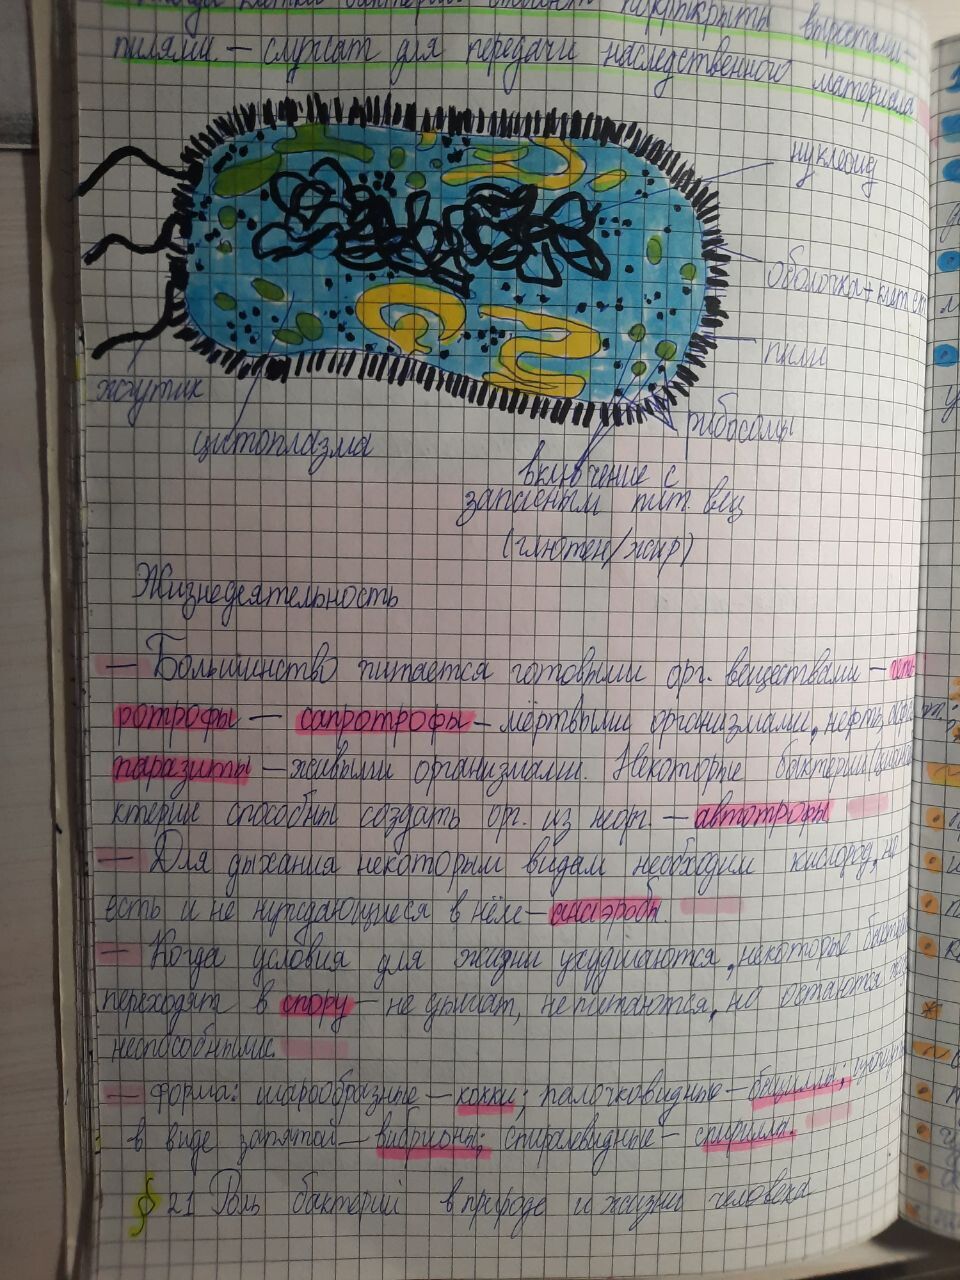 пилями - служат для передачи наследственного материала
нуклеоид
оболочка + клет.
пили
жгутик
рибосомы
цитоплазма
включение с
запасным пит. вещ
(глютен/жир)
Жизнедеятельность
— Большинство питается готовыми орг. веществами — гете
ротрофы — сапротрофы — мёртвыми организмами, нефть,
паразиты — живыми организмами. Некоторые бактерии (цианоба
ктерии способны создать орг. из неорг. — автотрофы
— Для дыхания некоторым видам необходим кислород, но
есть и не нуждающиеся в нём — анаэробы.
— Когда условия для жизни ухудшаются, некоторые бактерии
переходят в спору — не дышат, не питаются, но остаются
неспособными.
— Форма: шарообразные — кокки; палочковидные — бациллы,
в виде запятой — вибрионы; спиралевидные — спириллы.
§ 21 Роль бактерий в природе и жизни человека